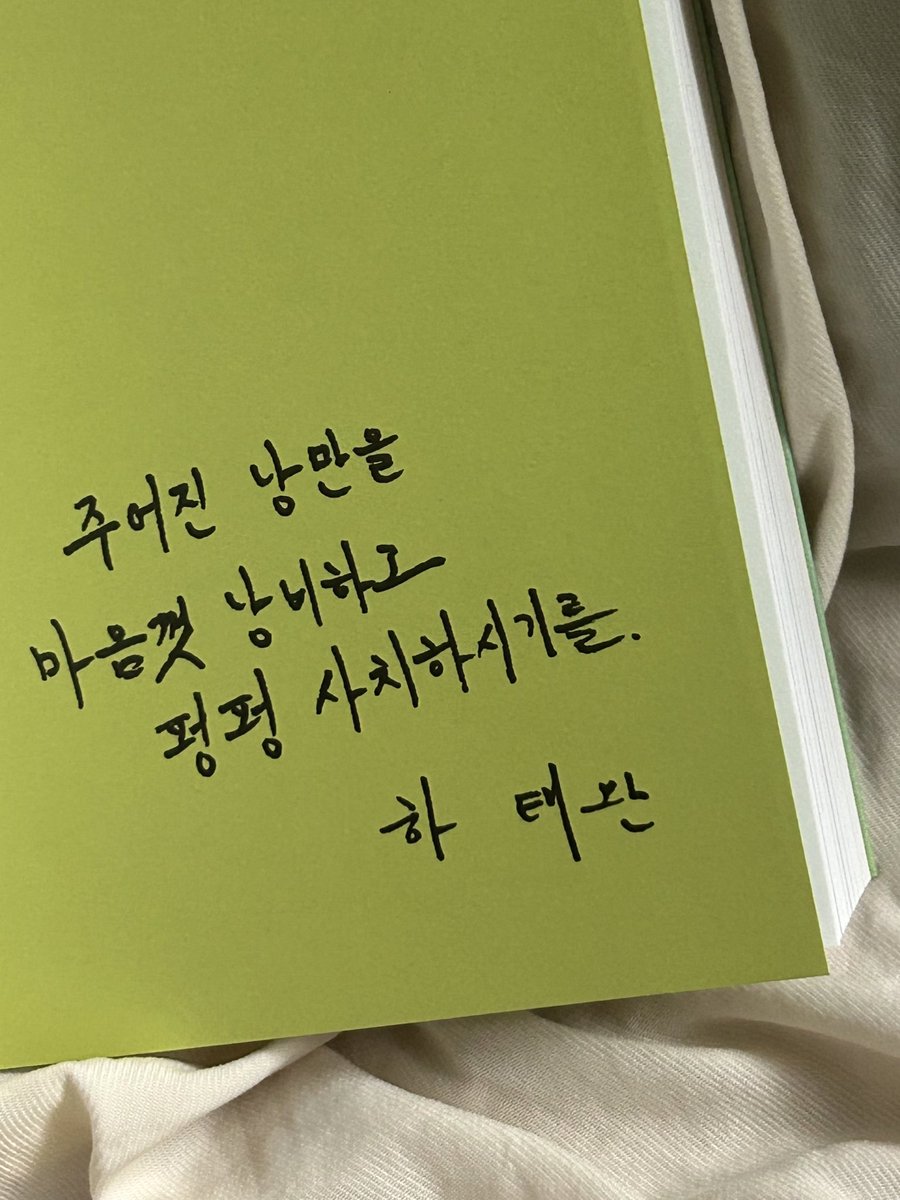 주어진 낭만을
마음껏 낭비하고
펑펑 사치하시기를.
하 태완